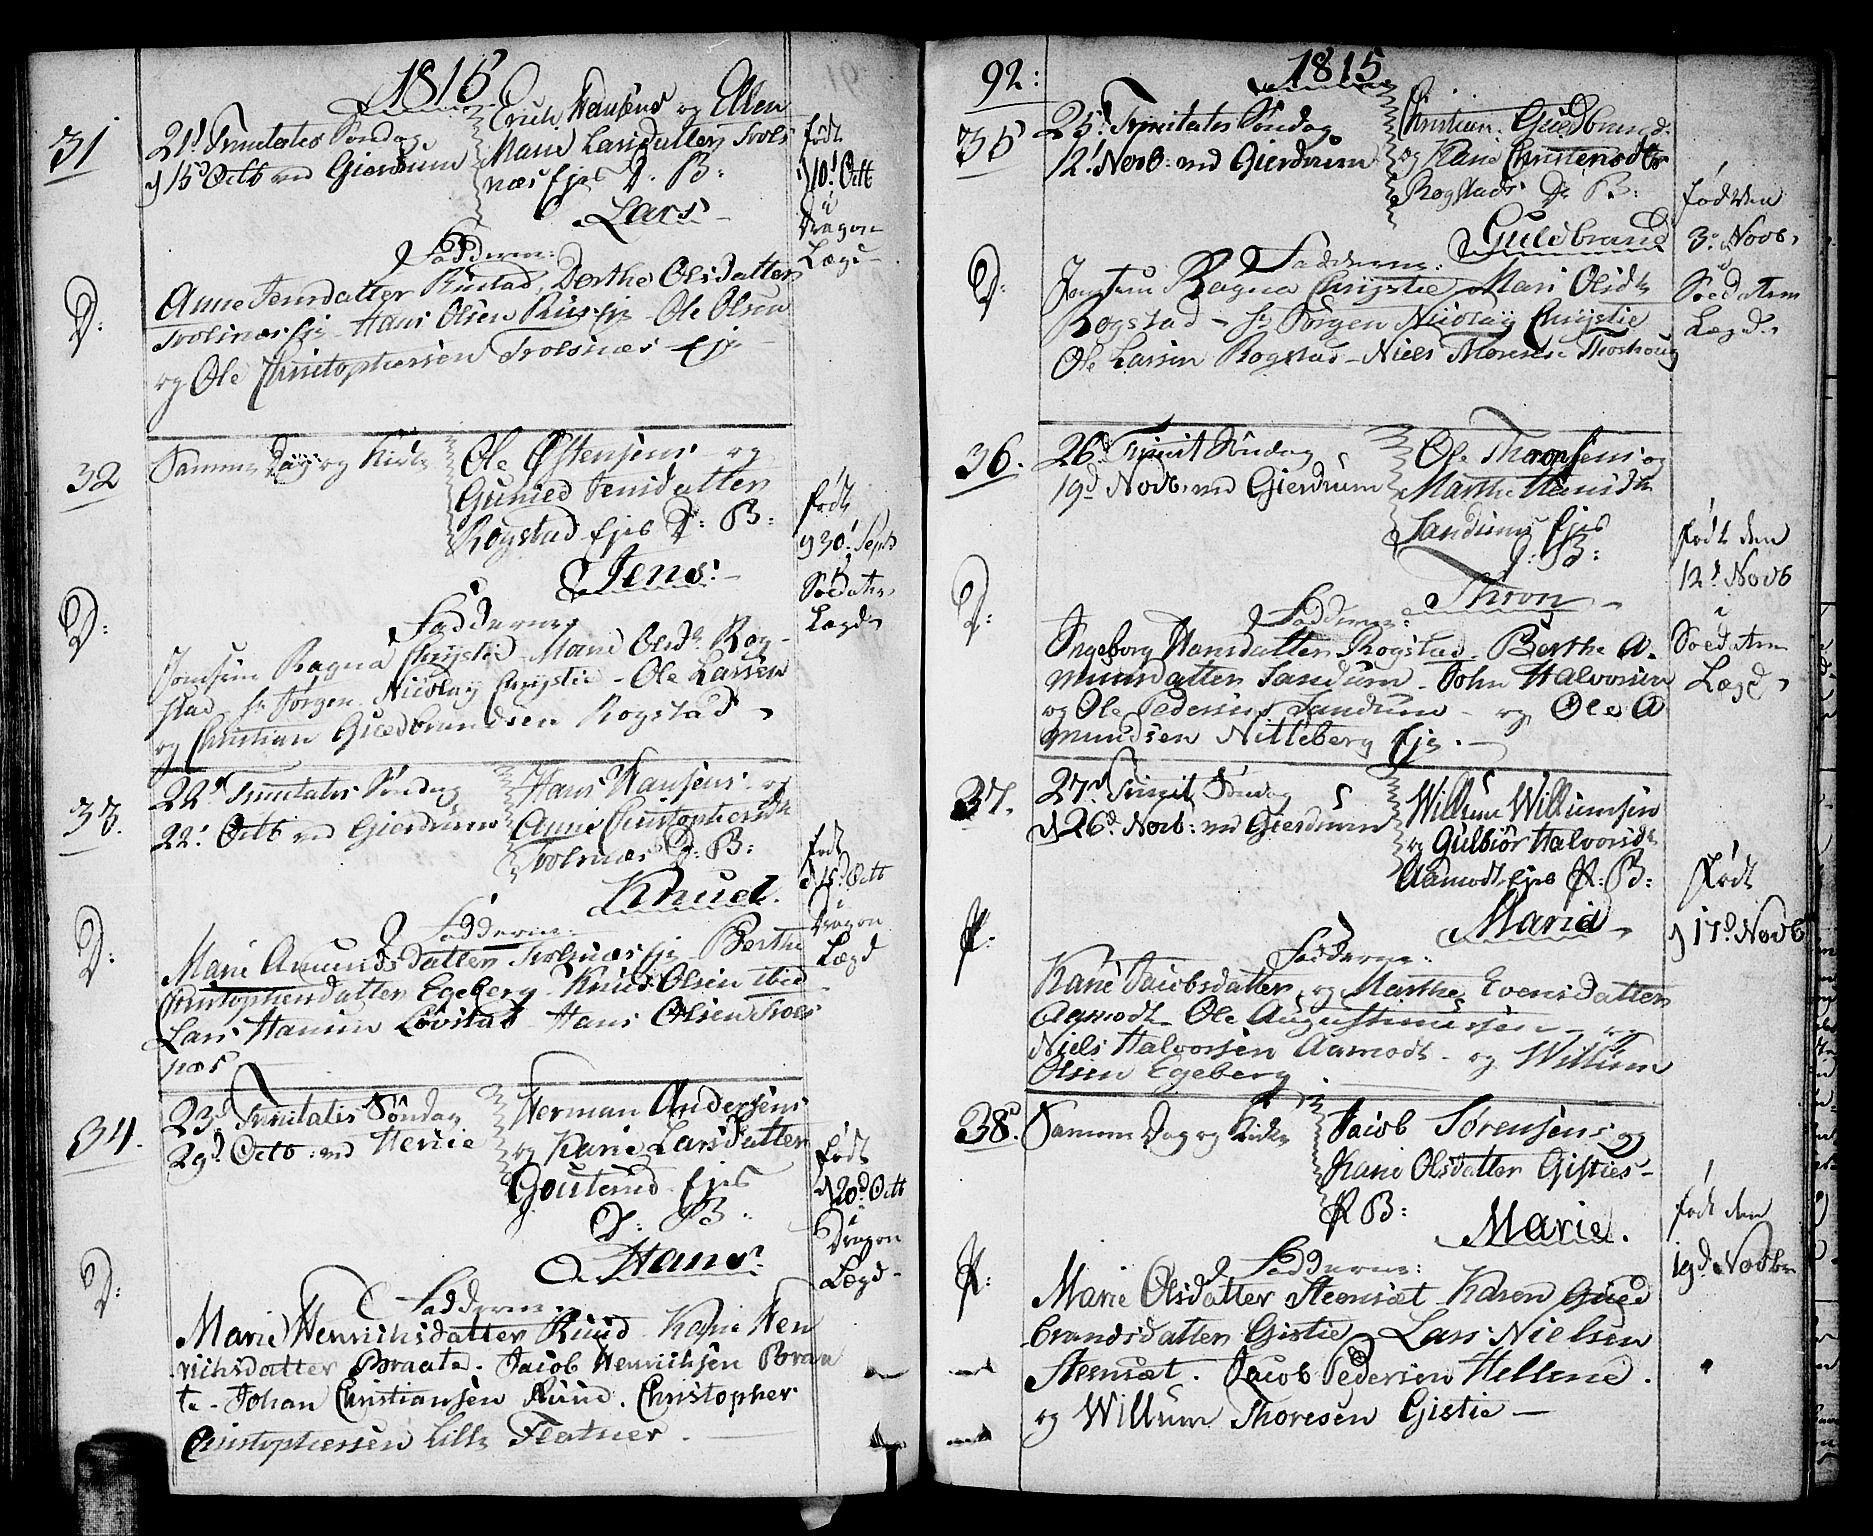 1815
31
21d Trinitatis Søndag
d 15d Octb ved Gierdrum
Erich Hansens og Ellen
Marie Larsdatter Trols
næs Ejes D. B:
Lars
født
d 10d Octb
i
Dragon
Lægd
Fadderne:
D:
Anne Jensdatter Rustad, Berthe Olsdatter
Trolsnæs Eje - Hans Olsen Eje - Ole Olsen
og Ole Christophersen Trolsnæs Eje
32
Samme Dag og Kirke
Ole Østensens og
Gunild Jensdatter
Rogstad Ejes D: B:
Jens
født
d 30d Septb
i
Soldater
Lægd
Fadderne
D:
Jomfrue Ragna Chrystie - Marie Olsdr Rog-
stad - Hr Jørgen Nicolaÿ Chrystie - Ole Larsen
og Christian Guldbrandsen Rogstad
33.
22d Trinitatis Søndag
22d Octb ved Gierdrum
Hans Hansens og
Anne Christophersdtr
Trolsnæs D: B:
Knud.
født
Octb
i
Dragon
Lægd
Fadderne:
D:
Marie Amundsdatter Trolsnæs Eje Berthe
Christophersdatter Egeberg - Knud Olsen ibid
Lars Hansen Løvstad - Hans Olsen Trols
næs
34.
23d Trinitatis Søndag
29d Octb: ved Heniie
Herman Andersens
og Karie Larsdatter
Ejes
D: B:
Hans
født
d 20d Octb
i
Dragon
Lægd
Fadderne
D:
Marie Henrichsdatter Ruud - Karie Hen
richsdatter Braate - Jacob Henrichsen Braa
te - Johan Christiansen Ruud. Christopher
Christophersen Lille Flatner.
92:
1815
35
25d Trinitatis Søndag
12d Novb: ved Gierdrum
Christian Guldbrands.
og Karie Christensdtr
Rogstads D. B:
Guldbrand
født den
3d Novb,
i
Soldaten
Lægd
Fadderne:
D:
Jomfrue Ragna Chrystie Mari Olsdtr
Rogstad - Hr Jørgen Nicolaÿ Chrystie
Ole Larsen Rogstad - Niels Thoresen Throshoug
36.
26d Trinit Søndag
19d Novb: ved Gierdrum
Ole Thronsens og
Marthe Hansdtr
Sandums Ejes
D. B:
Thron
født den
12d Novb
i
Soldaten
Lægd
Fadderne:
D:
Ingeborg Hansdatter Rogstad - Berthe A-
mundsdatter Sandum - John Halvorsen
og Ole Pedersen Sandum - og Ole A
mundsen Nitteberg Eje.
37.
27d Trinit Søndag
d 26d Novb: ved Gierdrum
Willum Willumsen
og Gulbiør Halvorsdtr
Aamodt Ejes R: B:
Marie
født
d 17d Novb
Fadderne:
R:
Karie Jacobsdatter og Marthe Evensdatter
Aamodt - Ole Augustinussen - og
Niels Halvorsen Aamodt - og Willum
Olsen Egeberg
38.
Samme Dag og Kirke
Jacob Sørensens og
Karie Olsdatter Gisties
R B:
Marie.
født den
19d Novbr
Fadderne:
R:
Marie Olsdatter Steensæt - Karen Guld
brandsdatter Gistie - Lars Nielsen
Steensæt - Jacob Pedersen Hellene.
og Willum Thoresen Gistie